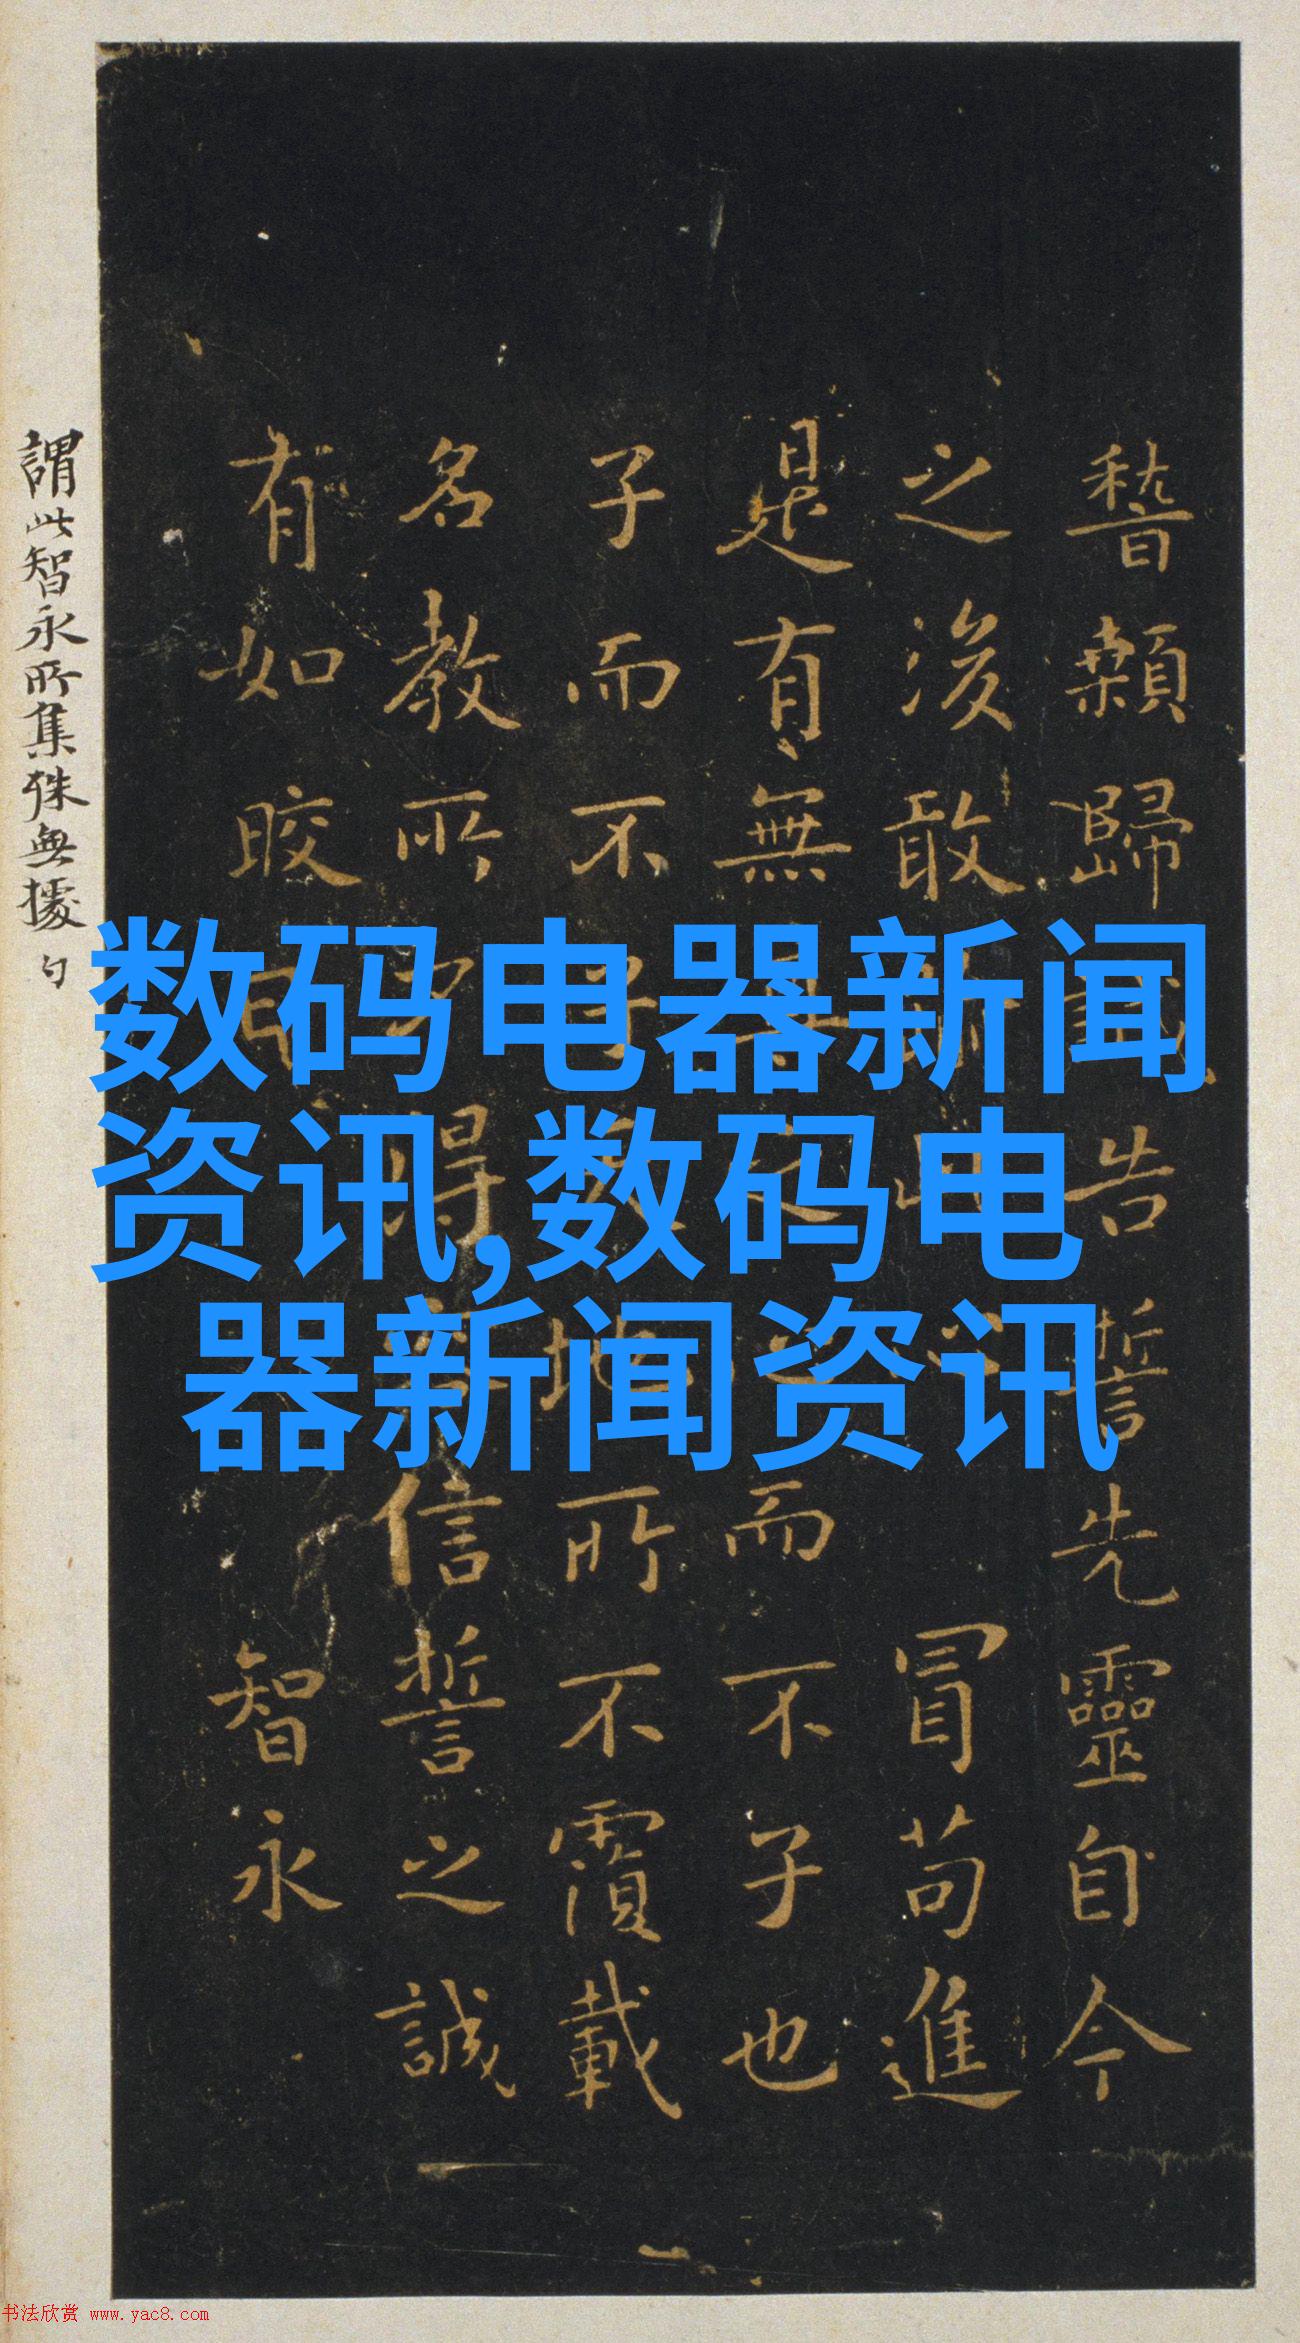 稽顙歸誠告誓先靈自今
之後敢此心冒苟進
是有無之而不子也
子而不子地所不覆載
名教所得信誓之誠
有如晈日
智永
謂此智永所集殊無據
数码电器新闻
资讯,数码电
器新闻资讯
书法欣赏 www.yac8.com